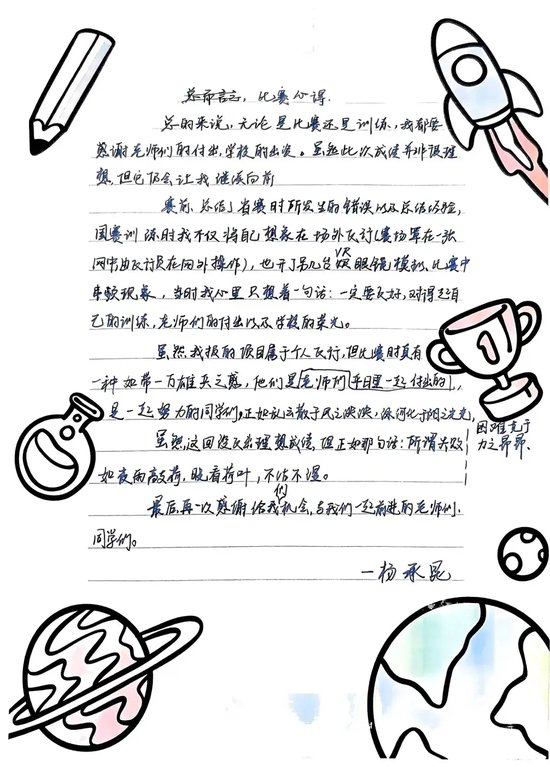 总而言之，比赛心得.
总的来说，无论是比赛还是训练，我都要
感谢老师们的付出，学校的出资。虽然此次成绩并非很理
想，但它仍会让我继续向前
赛前，总结了省赛时所发生的错误以及总结经验，
国赛训练时我不仅将自己想象在场外飞行(赛场罩在一张
网中由飞行员在网外操作)，也开了另几台VR眼镜模拟比赛中
串频现象，当时我心里只想着一句话：一定要飞好，对得起自
己的训练，老师们的付出以及学校的荣光。
虽然我报的项目属于个人飞行，但比赛时真有
一种如带一万雄兵之感，他们是老师们平日里一起付出的，
是一起努力的同学们，正如乱云散于风之泱泱，深河化于阳之光光，
困难克于
力之昂昂、
虽然这回没取得理想成绩，但正如那句话：所谓失败
如夜雨敲荷，晚看荷叶，不沾不湿。
最后，再一次感谢给我们机会，与我们一起前进的老师们，
同学们。
一杨承昆
1